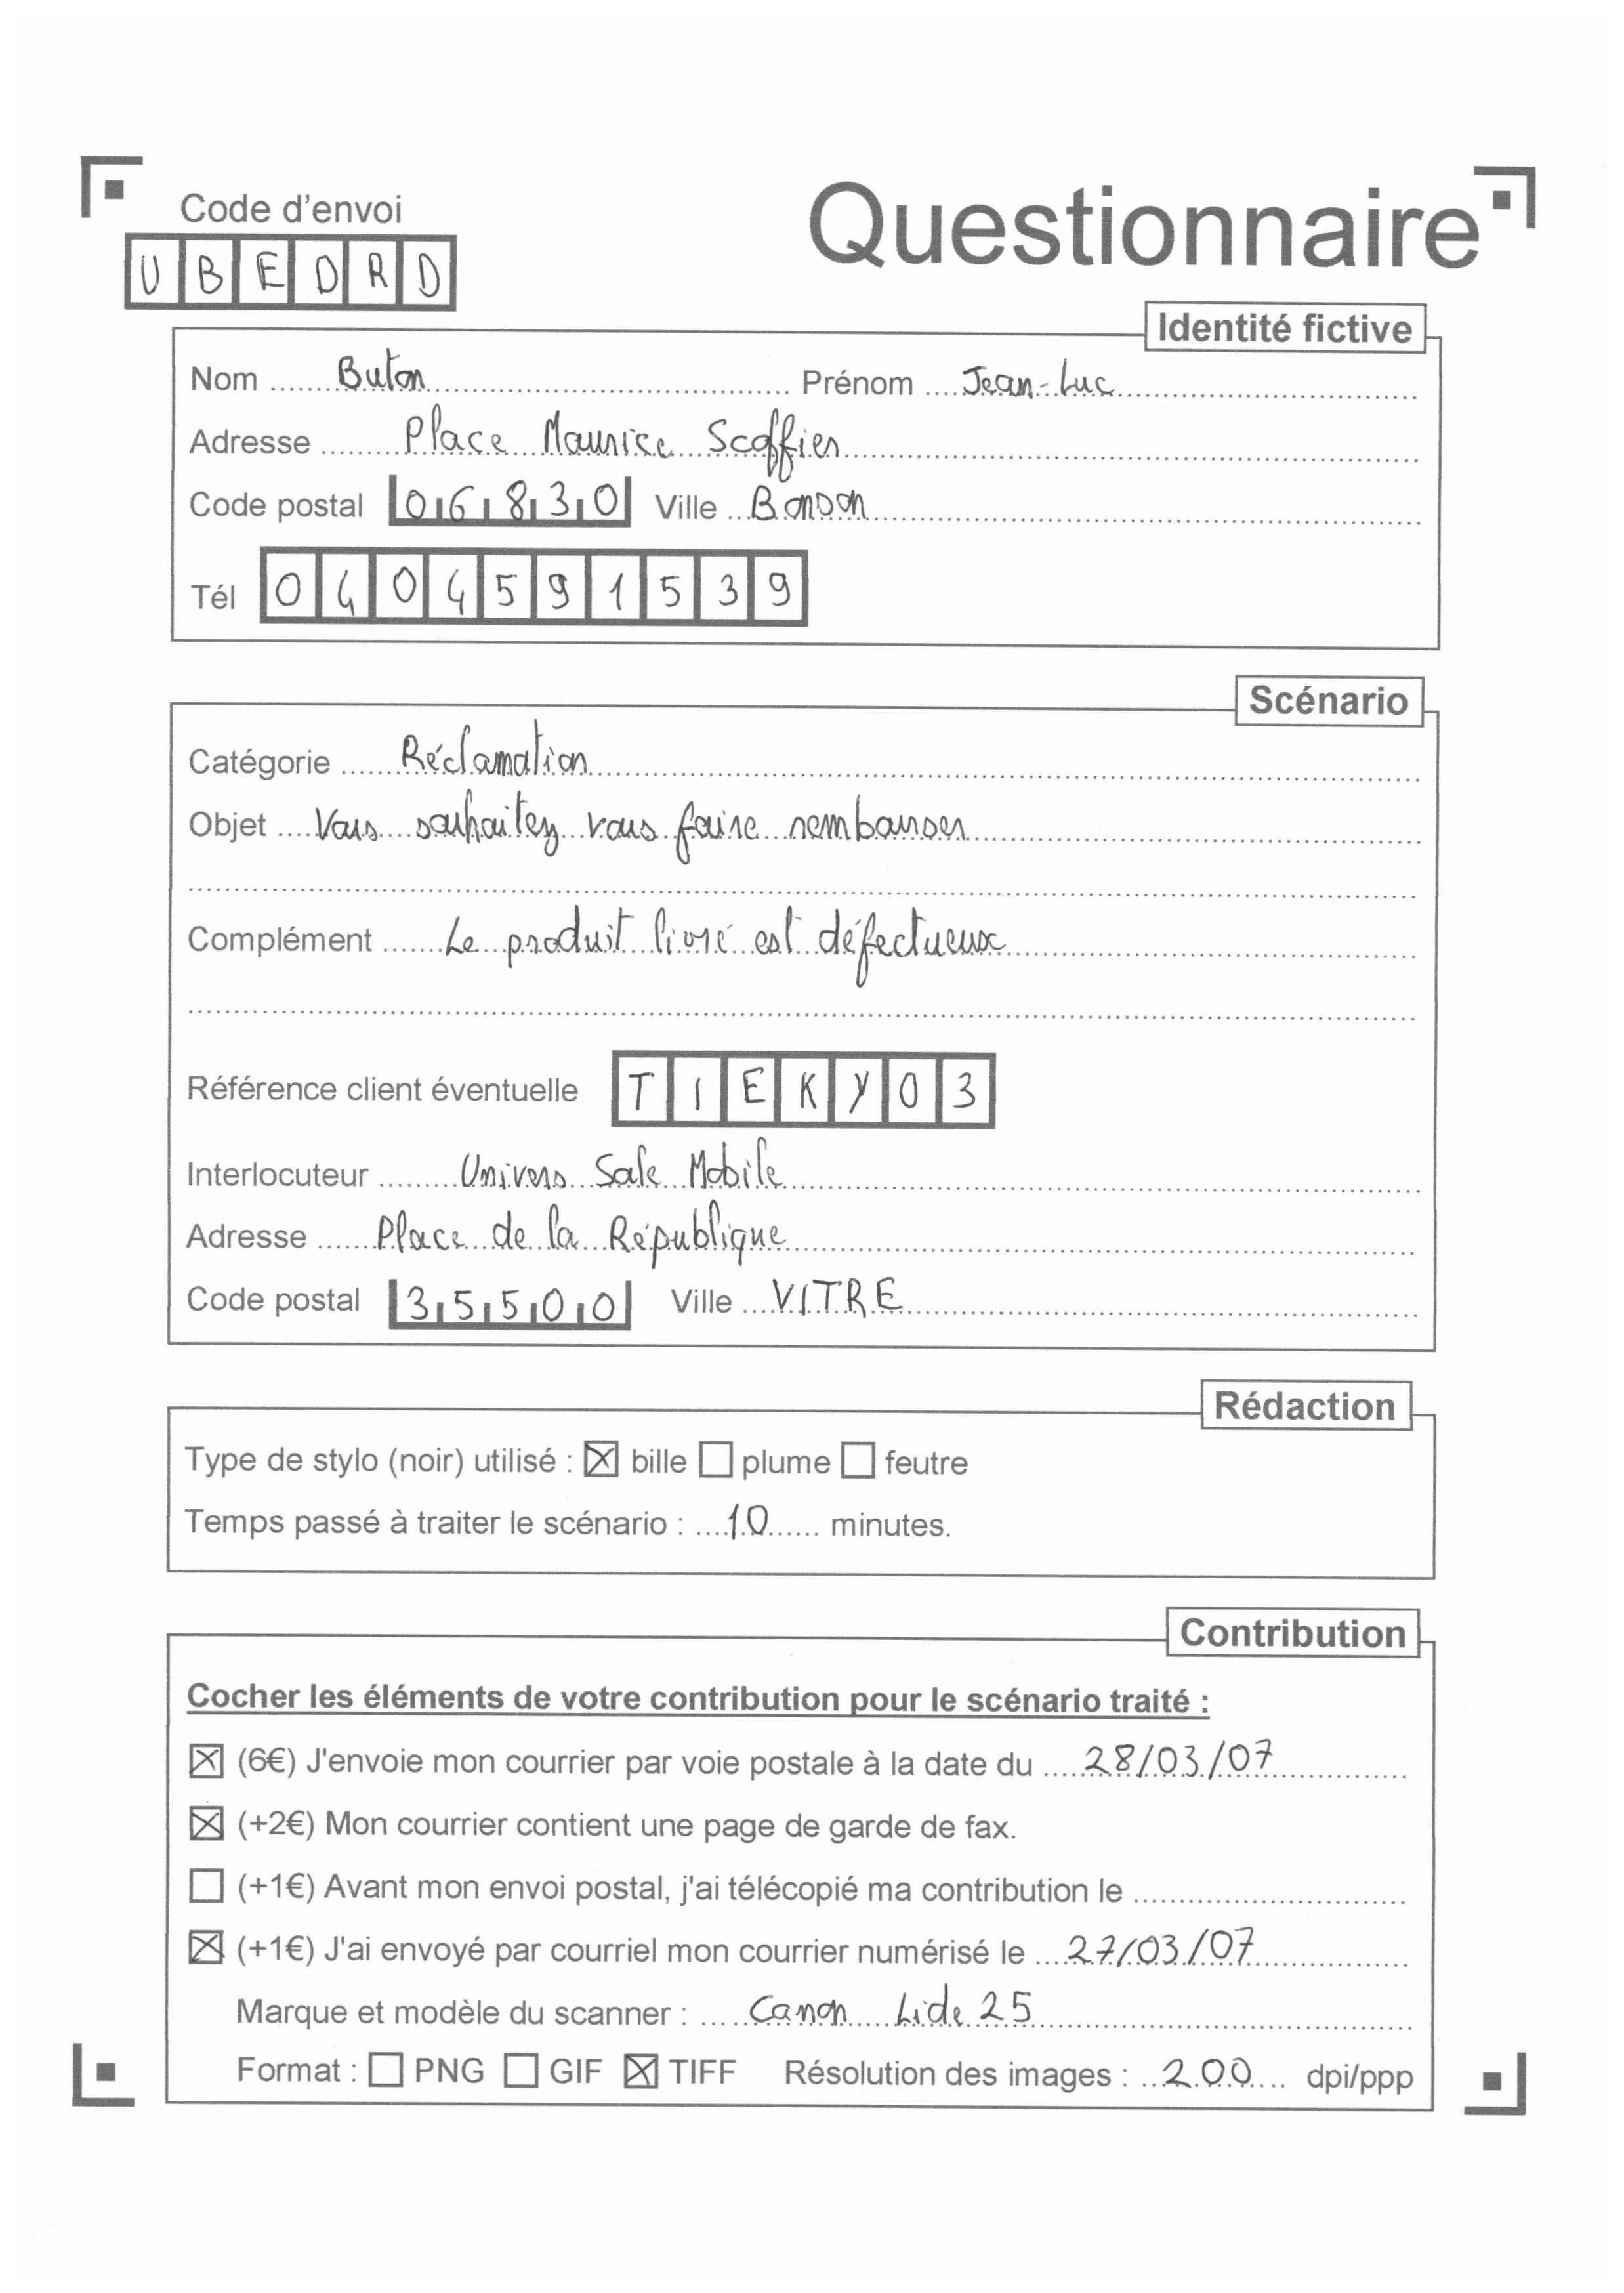 Code d'envoi
Questionnaire
UBEDRD
Identité fictive
Nom Buton Prénom Jean-Luc
Adresse Place Maurice Scoffier
Code postal 06830 Ville Bonson
Tél 0404591539
Scénario
Catégorie Réclamation
Objet Vous souhaitez vous faire rembourser
Complément Le produit livré est défectueux
Référence client éventuelle TIEKY03
Interlocuteur Univers Sale Mobile
Adresse Place de la République
Code postal 35500 Ville VITRE
Rédaction
Type de stylo (noir) utilisé : ☒ bille ☐ plume ☐ feutre
Temps passé à traiter le scénario : 10 minutes.
Contribution
Cocher les éléments de votre contribution pour le scénario traité :
☒ (6€) J'envoie mon courrier par voie postale à la date du 28/03/07
☒ (+2€) Mon courrier contient une page de garde de fax.
☐ (+1€) Avant mon envoi postal, j'ai télécopié ma contribution le
☒ (+1€) J'ai envoyé par courriel mon courrier numérisé le 27/03/07
Marque et modèle du scanner : Canon Lide 25
Format : ☐ PNG ☐ GIF ☒ TIFF Résolution des images : 200 dpi/ppp